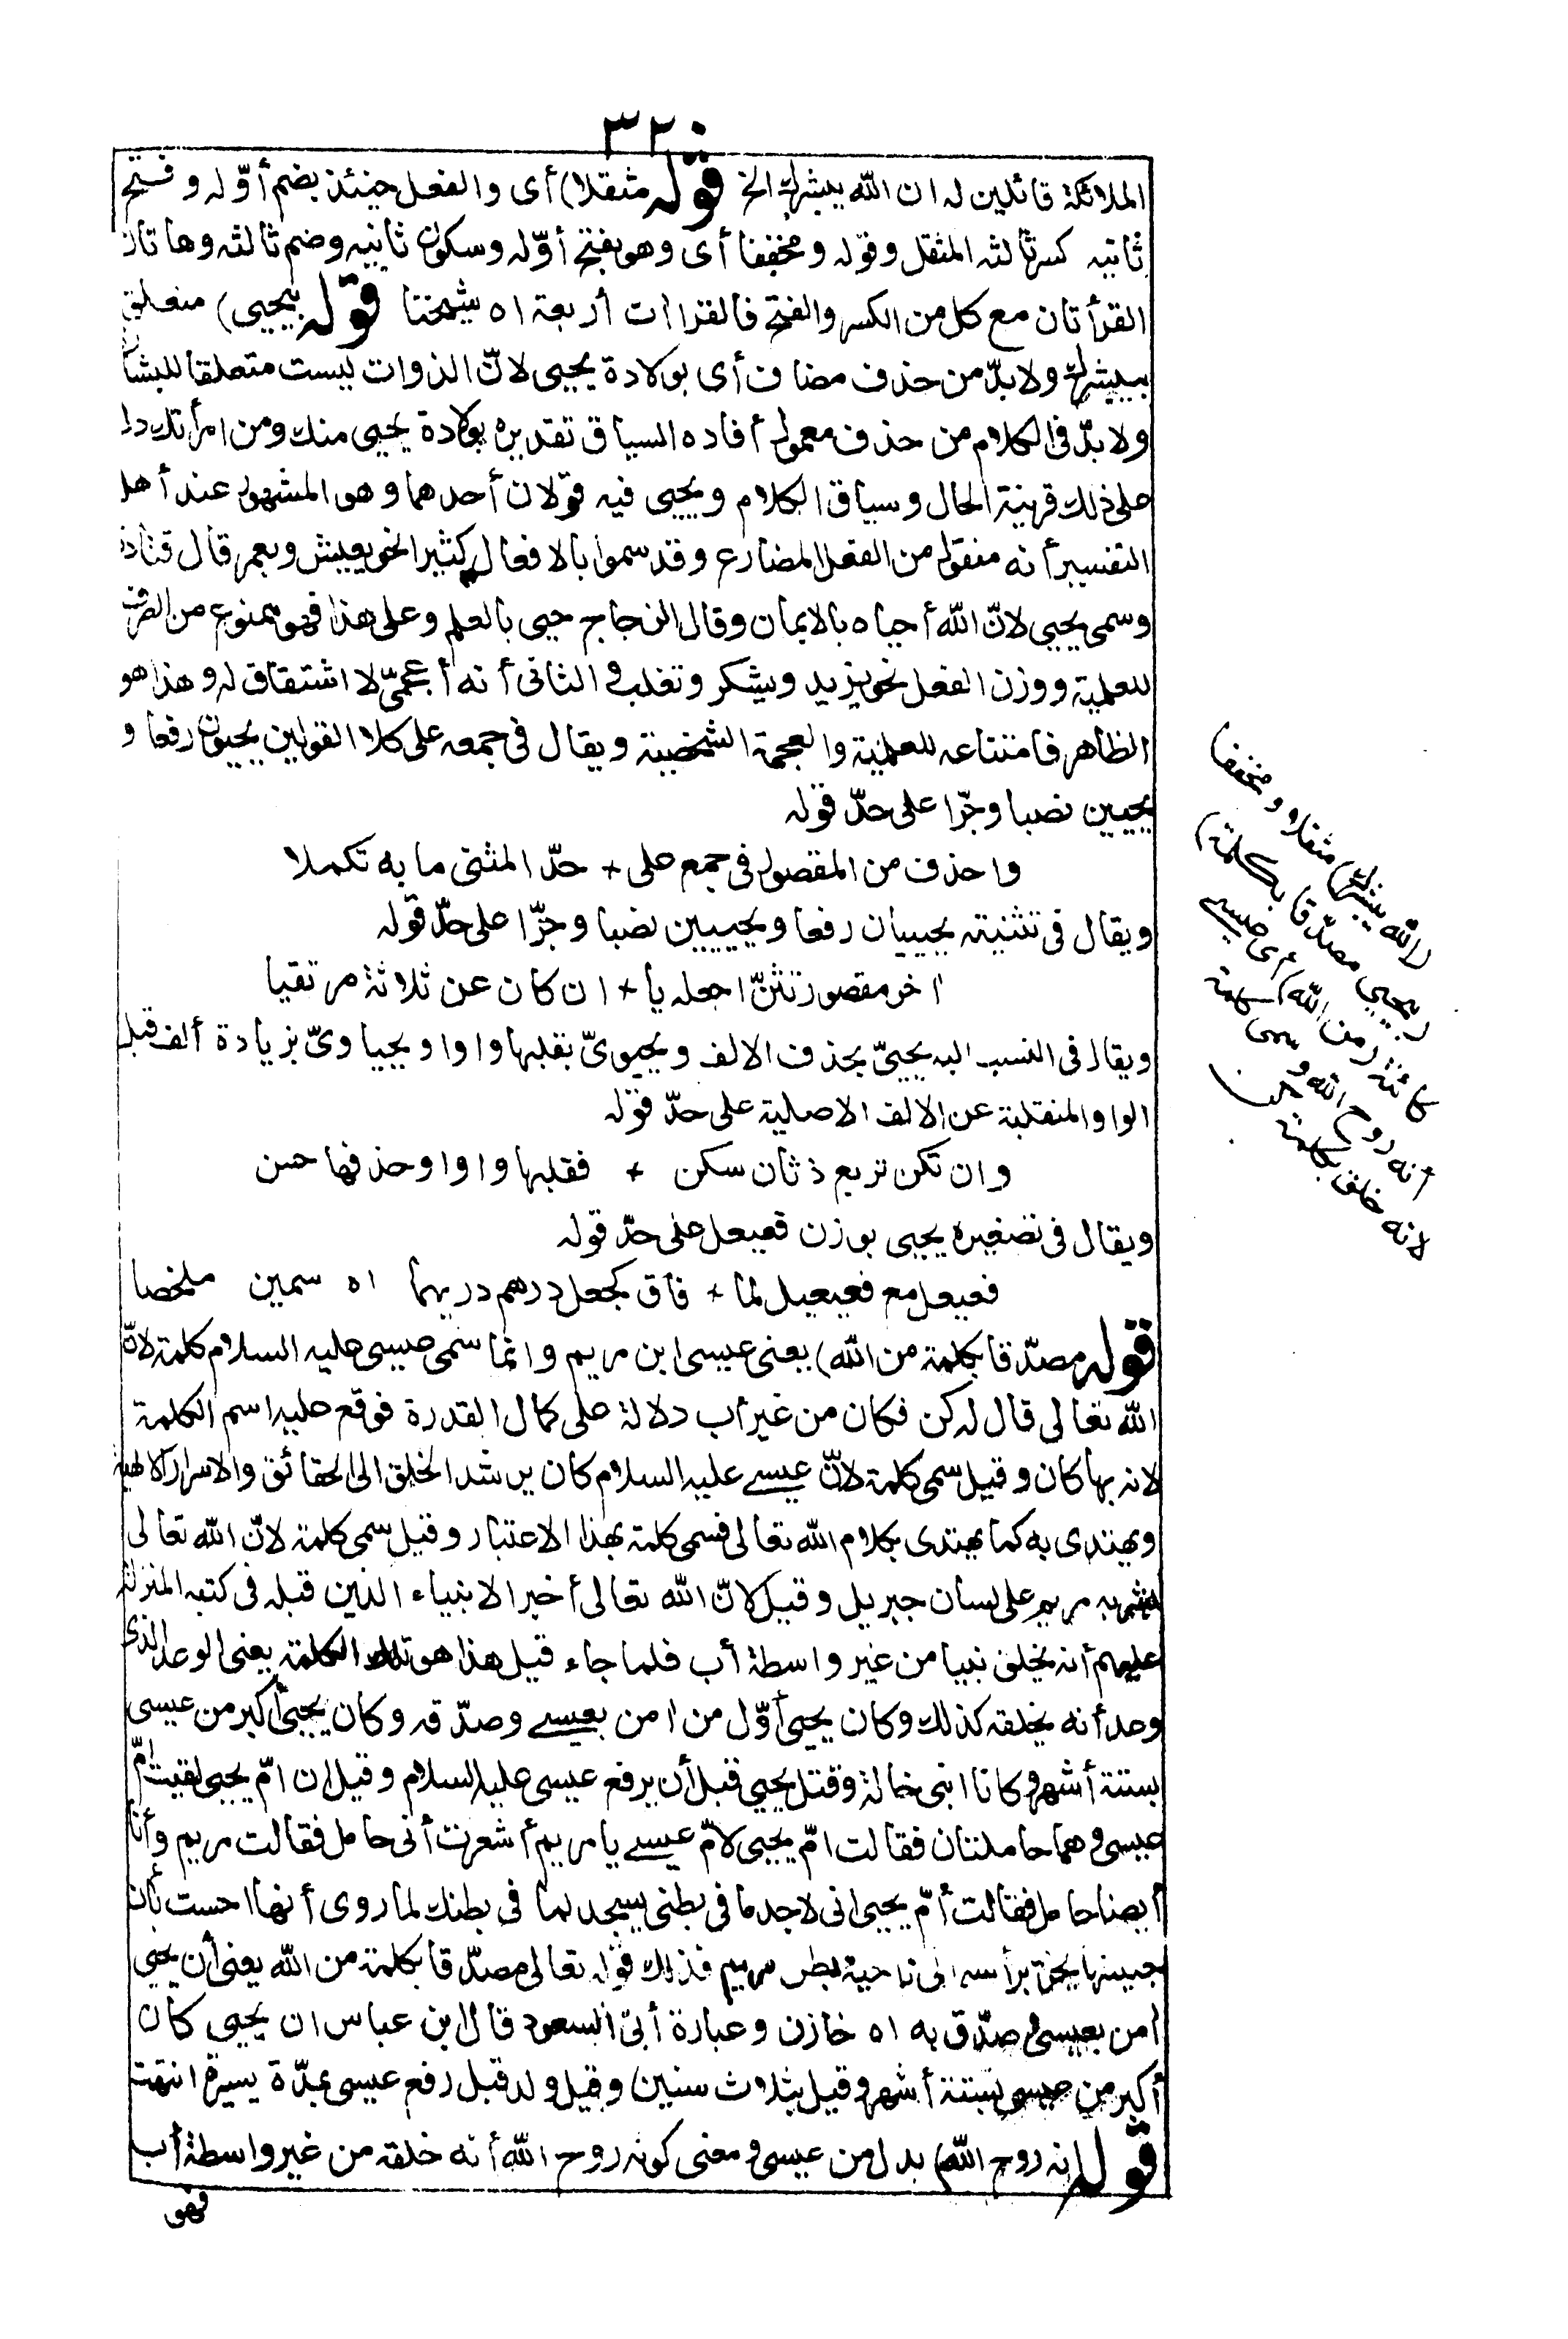 ٣٢٠
الملائكة قائلين له ان الله يبشرك الخ قوله مثقلا) أى والفعل حينئذ بضم أوّله وفتح
ثانيه كسر ثالثه المثقل وقوله ومخففا أى وهو بفتح أوّله وسكون ثانيه وضم ثالثه وهاتان
القرأتان مع كل من الكسر والفتح فالقراات أربعة اه شيخنا قوله بيحيى) متعلق
بيبشرك ولا بدّ من حذف مضاف أى بولادة يحيى لانّ الذوات ليست متعلقا للبشا
ولا بدّ فى الكلام من حذف معمول أفاده السياق تقديره بولادة يحيى منك ومن امرأتك دل
على ذلك قرينة الحال وسياق الكلام ويحيى فيه قولان أحدهما وهو المشهور عند أهل
التفسير أنه منقول من الفعل المضارع وقد سموا بالافعال كثيرا نحو يعيش ويعمر قال قتادة
وسمى يحيى لانّ الله أحياه بالايمان وقال الزجاج حيى بالعلم وعلى هذا فهو ممنوع من الصرف
للعلمية ووزن الفعل نحو يزيد ويشكر وتغلب والثانى أنه أعجمىّ لا اشتقاق له وهذا هو
الظاهر فامتناعه للعلمية والعجمة الشخصية ويقال فى جمعه على كلا القولين يحيون رفعا و
يحيين نصبا وجرّا على حدّ قوله
واحذف من المقصور فى جمع على + حدّ المثنى ما به تكملا
ويقال فى تثنيته يحييان رفعا ويحييين نصبا وجرّا على حدّ قوله
اخر مقصور تثنّ اجعله يا + ان كان عن ثلاثة مرتقيا
ويقال فى النسب اليه يحيىّ بحذف الالف ويحيوىّ بقلبها واوا ويحياوىّ بزيادة ألف قبل
الواو المنقلبة عن الالف الاصلية على حدّ قوله
وان تكن تربع ذ ثان سكن + فقلبها واوا وحذفها حسن
ويقال فى تصغيره يحيى بوزن فعيعل على حدّ قوله
فعيعل مع فعيعيل لما + فاق كجعل درهم دريهما اه سمين ملخصا
قوله مصدّقا بكلمة من الله) يعنى عيسى ابن مريم وانما سمى عيسى عليه السلام كلمة لانّ
الله تعالى قال له كن فكان من غير أب دلالة على كمال القدرة فوقع عليه اسم الكلمة
لانه بها كان وقيل سمى كلمة لانّ عيسے عليه السلام كان يرشد الخلق الى الحقائق والاسرار الالهية
ويهتدى به كما يهتدى بكلام الله تعالى فسمى كلمة بهذا الاعتبار وقيل سمى كلمة لانّ الله تعالى
بشر به مريم على لسان جبريل وقيل لانّ الله تعالى أخبر الانبياء الذين قبله فى كتبه المنزلة
عليهم أنه يخلق نبيا من غير واسطة أب فلما جاء قيل هذا هو تلك الكلمة يعنى الوعد الذى
وعد أنه يخلقه كذلك وكان يحيى أوّل من امن بعيسے وصدّقه وكان يحيى أكبر من عيسى
بستة أشهر وكانا ابنى خالة وقتل يحيى قبل أن يرفع عيسى عليه السلام وقيل ان امّ يحيى لقيت امّ
عيسى وهما حاملتان فقالت امّ يحيى لامّ عيسے يا مريم أشعرت أنى حامل فقالت مريم وأنا
أيضا حامل فقالت أمّ يحيى انى لاجد ما فى بطنى يسجد لما فى بطنك لما روى أنها احست بأن
جنينها يخرّ برأسه الى ناحية بطن مريم فذلك قوله تعالى مصدّقا بكلمة من الله يعنى أن يحيى
امن بعيسى وصدّق به اه خازن وعبارة أبى السعود قال ابن عباس ان يحيى كان
أكبر من عيسى بستة أشهر وقيل بثلاث سنين وقيل ولد قبل رفع عيسى بمدّة يسيرة انتهت
قوله انه روح الله) بدل من عيسى ومعنى كونه روح الله أنه خلقه من غير واسطة أب
فهو
(الله يبشرك) مثقلا ومخففا
(بيحيى مصدّقا بكلمة)
كائنة (من الله) أى عيسے
أنه روح الله وسمى كلمة
لانه خلق بكلمة كن